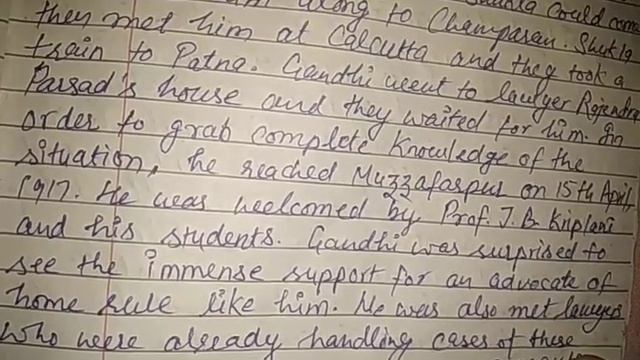 along to Champaran. Shukla could come
they met him at Calcutta and they took a
train to Patna. Gandhi went to lawyer Rajendra
Parsad's house and they waited for him. In
order to grab complete knowledge of the
situation, he reached Muzzafarpur on 15th April,
1917. He was welcomed by Prof. J.B Kriplani
and his students. Gandhi was surprised to
see the immense support for an advocate of
home rule like him. He was also met lawyers
who were already handling cases of these